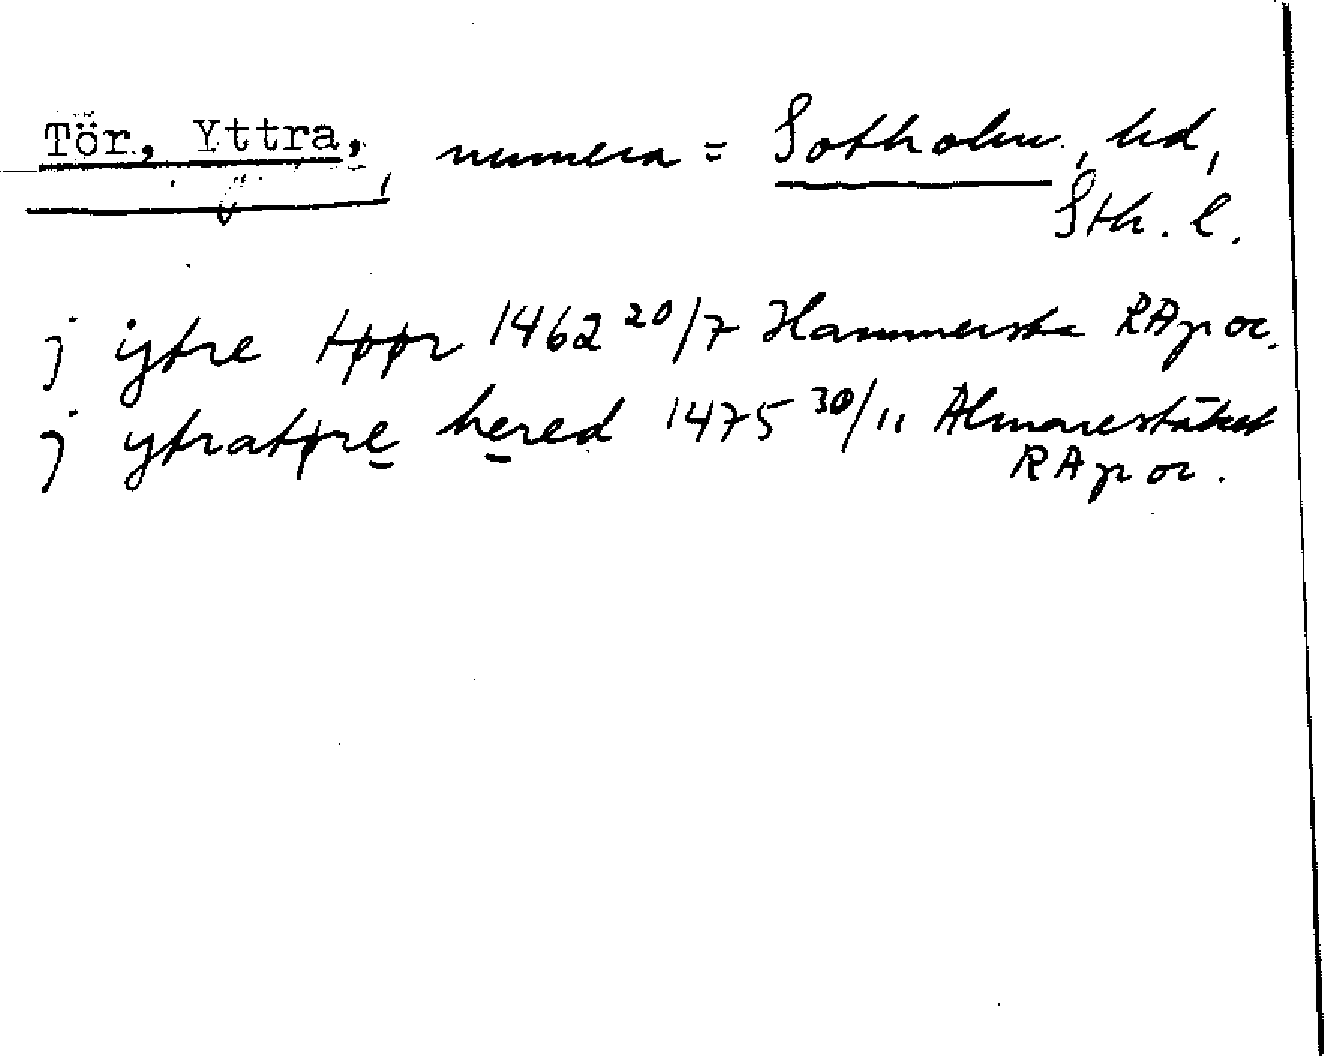 Tör, Yttra, numera = Sotholm, hd,
Sth. l.
j ijtre tøør 1462 20/7 Hammersta RApor.
j ytratøre hered 1475 30/11 Almarestäket
RApor.